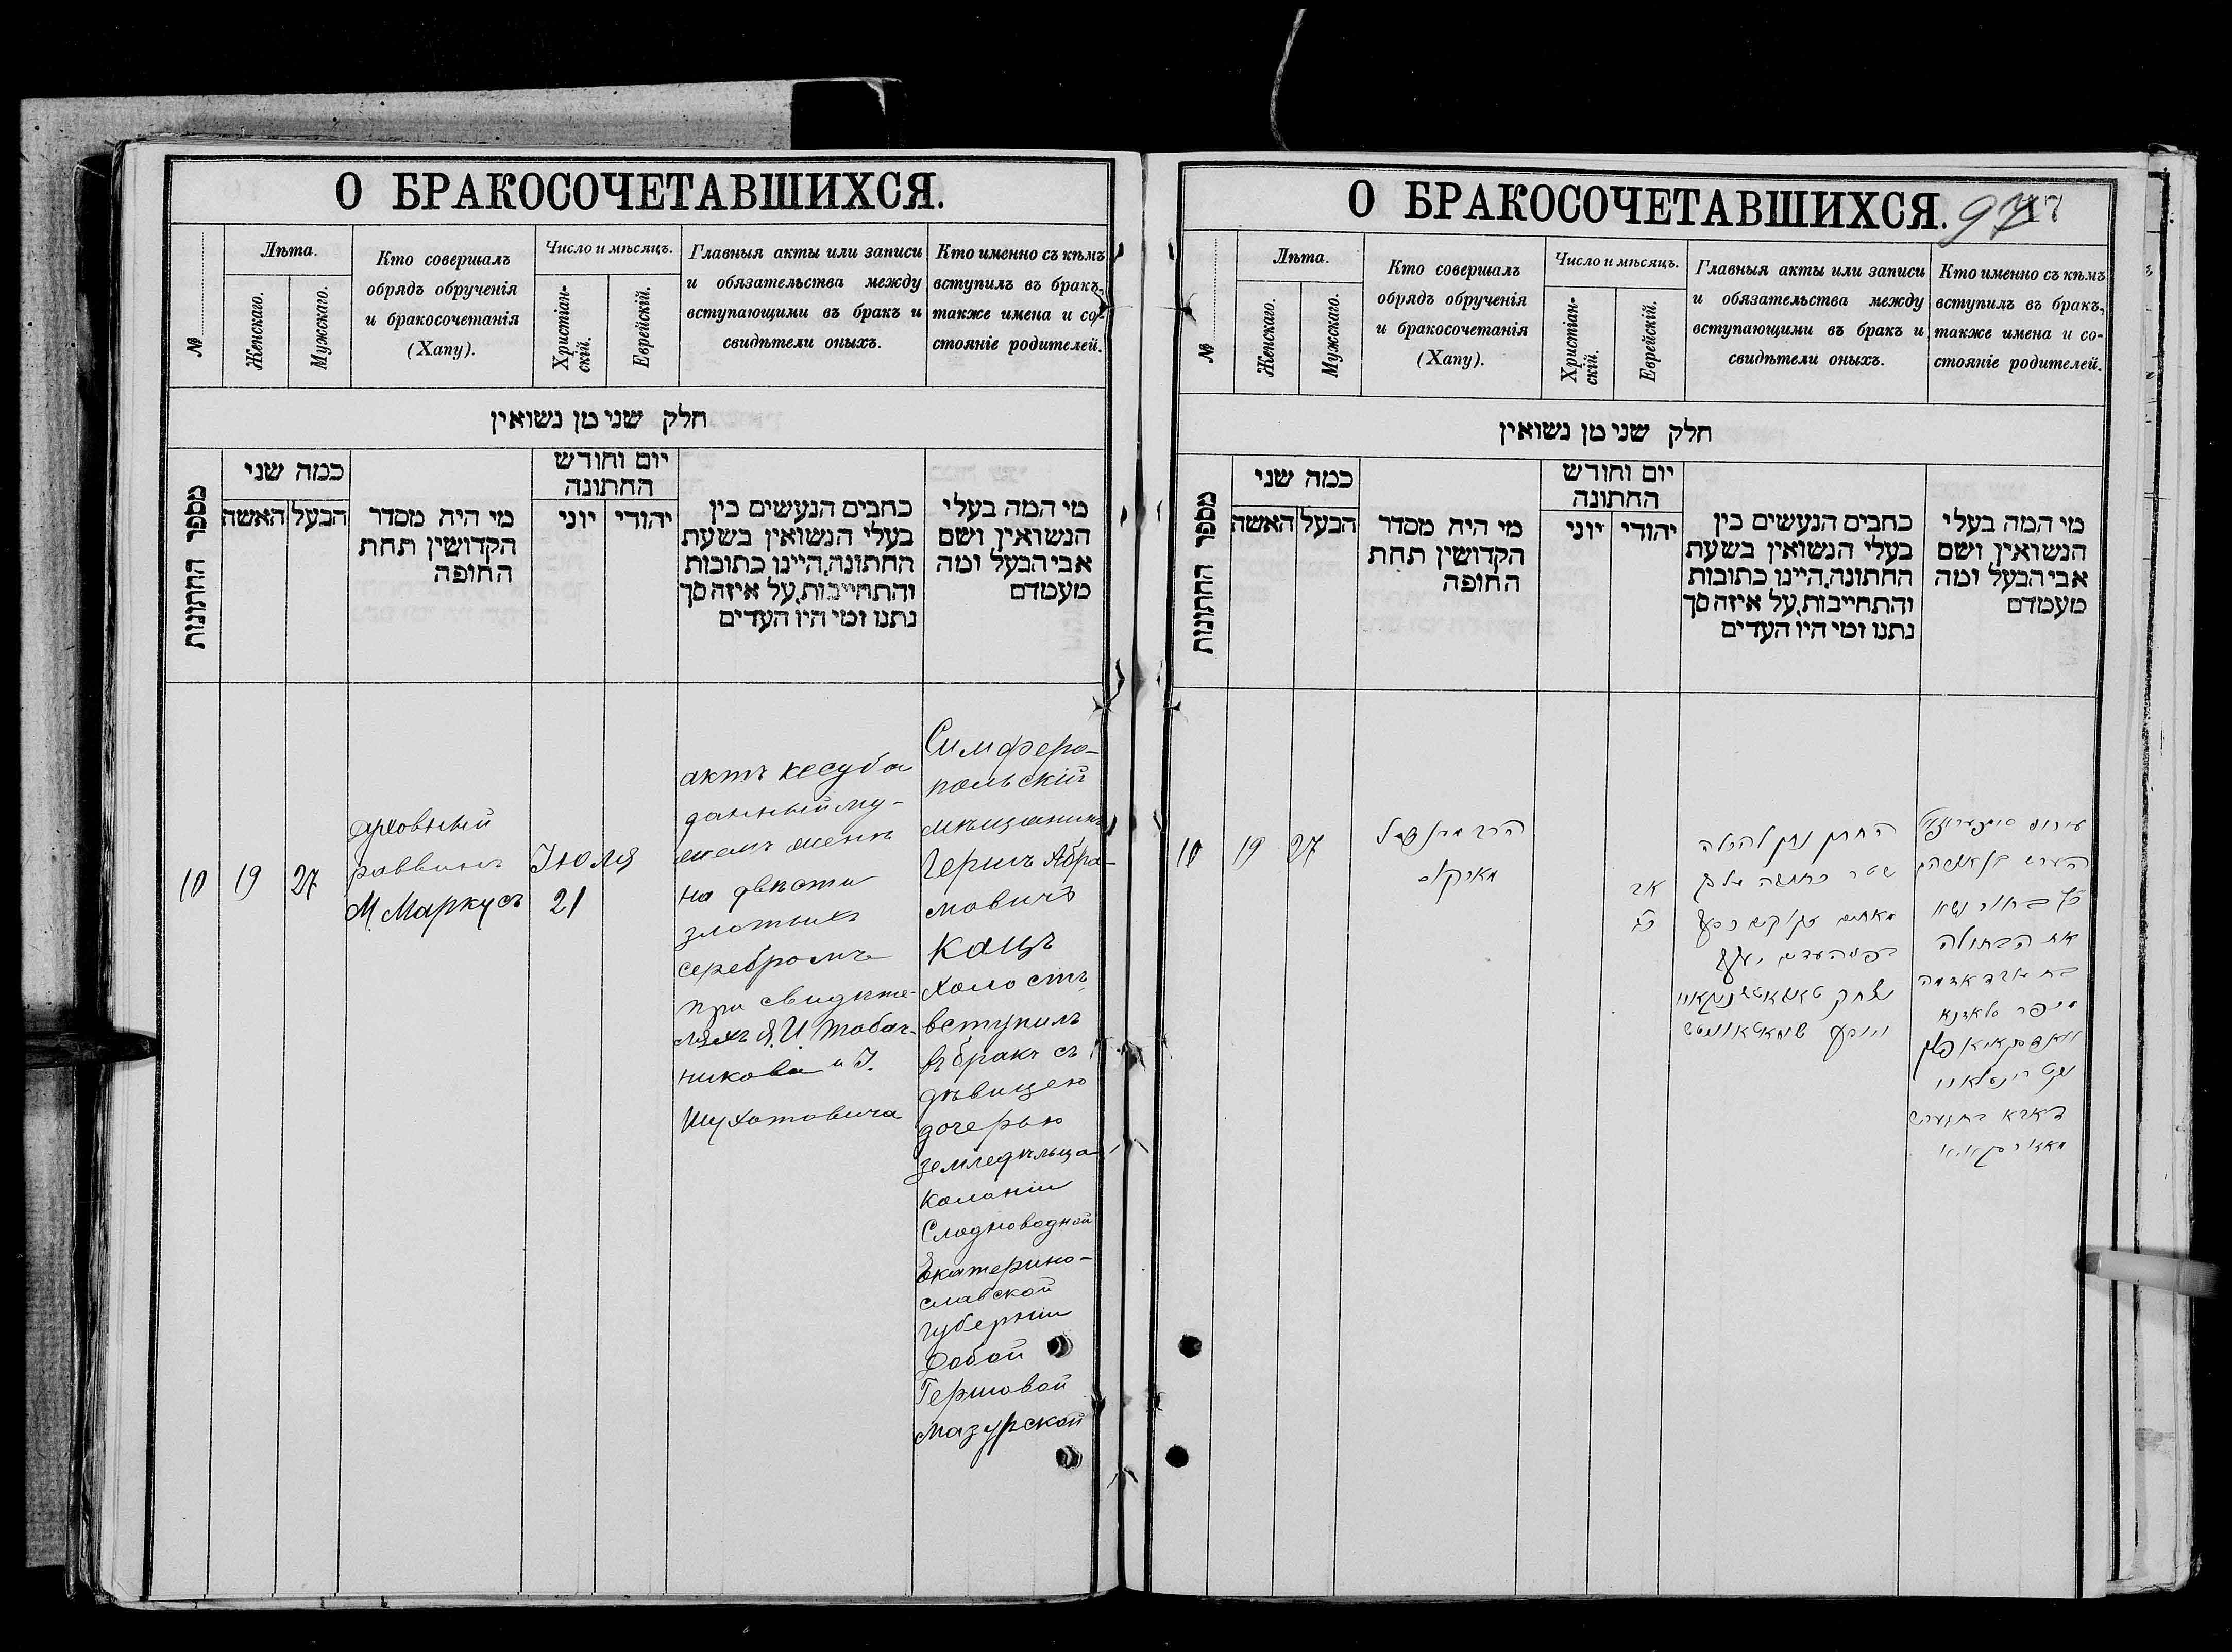 О БРАКОСОЧЕТАВШИХСЯ.
№
Лѣта.
Женскаго.
Мужскаго.
Кто совершалъ
обрядъ обрученія
и бракосочетанія
(Хапу).
Число и мѣсяцъ.
Христіан-
скій.
Еврейскій.
Главныя акты или записи
и обязательства между
вступающими въ бракъ и
свидѣтели оныхъ.
Кто именно съ кѣмъ
вступилъ въ бракъ,
также имена и со-
стояніе родителей.
חלק שני מן נשואין
מספר החתונות
כמה שני
האשה
הבעל
מי היה מסדר
הקדושין תחת
החופה
יום וחודש
החתונה
יוני
יהודי
כתבים הנעשים בין
בעלי הנשואין בשעת
החתונה, היינו כתובות
והתחייבות, על איזה סך
נתנו ומי היו העדים
מי המה בעלי
הנשואין ושם
אבי הבעל ומה
מעמדם
10
19
27
духовный
раввинъ
М. Маркусъ
Іюля
21
актъ кесуба
данный му-
жемъ женѣ
на двѣсти
злотыхъ
серебромъ
при свидѣте-
ляхъ Я. И Табач-
никова и І.
Шухатовича
Симферо-
польскій
мѣщанинъ
Гершъ Абра-
мовичъ
Кацъ
холостъ
вступилъ
въ бракъ съ
дѣвицею
дочерью
земледѣльца
колоніи
Сладководной
Екатерино-
славской
губерніи
Добой
Гершовой
Мазурской
О БРАКОСОЧЕТАВШИХСЯ.
97
№
Лѣта.
Женскаго.
Мужскаго.
Кто совершалъ
обрядъ обрученія
и бракосочетанія
(Хапу).
Число и мѣсяцъ.
Христіан-
скій.
Еврейскій.
Главныя акты или записи
и обязательства между
вступающими въ бракъ и
свидѣтели оныхъ.
Кто именно съ кѣмъ
вступилъ въ бракъ,
также имена и со-
стояніе родителей.
חלק שני מן נשואין
מספר החתונות
כמה שני
האשה
הבעל
מי היה מסדר
הקדושין תחת
החופה
יום וחודש
החתונה
יוני
יהודי
כתבים הנעשים בין
בעלי הנשואין בשעת
החתונה, היינו כתובות
והתחייבות, על איזה סך
נתנו ומי היו העדים
מי המה בעלי
הנשואין ושם
אבי הבעל ומה
מעמדם
10
19
27
הרב
מארקוס
אב
החתן נתן להכלה
שטר כתובה
מאתים זקוקים כסף
כ"ץ בחור נשא
את הבתולה